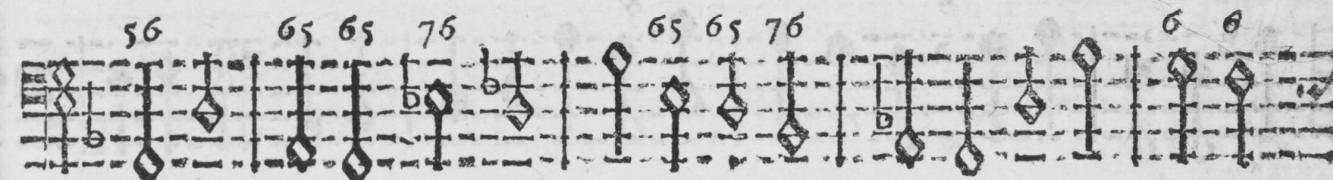 56 65 65 76 65 65 76 6 6